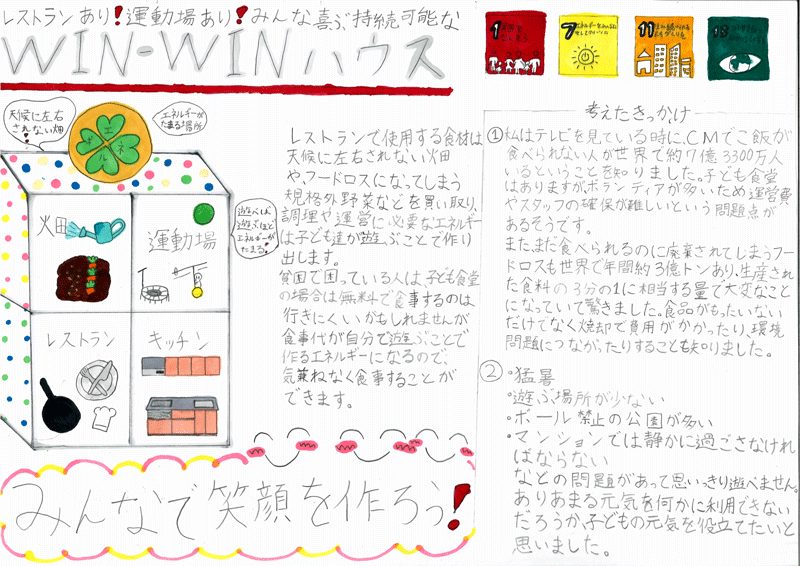 レストランあり!運動場あり!みんな喜ぶ持続可能な
WIN-WINハウス
1
7
11
13
天候に左右
されない畑
エネルギーが
たまる場所
エネ
遊べば
遊ぶほど
エネルギーが
たまる!
畑
運動場
レストラン
キッチン
レストランで使用する食材は
天候に左右されない畑
や、フードロスになってしまう
規格外野菜などを買い取り、
調理や運営に必要なエネルギー
は子ども達が遊ぶことで作り
出します。
貧困で困っている人は、子ども食堂
の場合は無料で食事するのは
行きにくいかもしれませんが
食事代が自分で遊ぶことで
作るエネルギーになるので、
気兼ねなく食事することが
できます。
みんなで笑顔を作ろう!
考えたきっかけ
①私はテレビを見ている時に、CMでご飯が
食べられない人が世界で約7億3300万人
いるということを知りました。子ども食堂
はありますがボランティアが多いため運営費
やスタッフの確保が難しいという問題点が
あるそうです。
まだまだ食べられるのに廃棄されてしまうフー
ドロスも世界で年間約3億トンあり、生産され
た食料の3分の1に相当する量で大変なこと
になっていて驚きました。食品がもったいない
だけでなく焼却で費用がかかったり、環境
問題につながったりすることも知りました。
②・猛暑
・遊ぶ場所が少ない
・ボール禁止の公園が多い
・マンションでは静かに過ごさなけれ
ばならない
などの問題があって思いっきり遊べません。
ありあまる元気を何かに利用できない
だろうか、子どもの元気を役立てたいと
思いました。